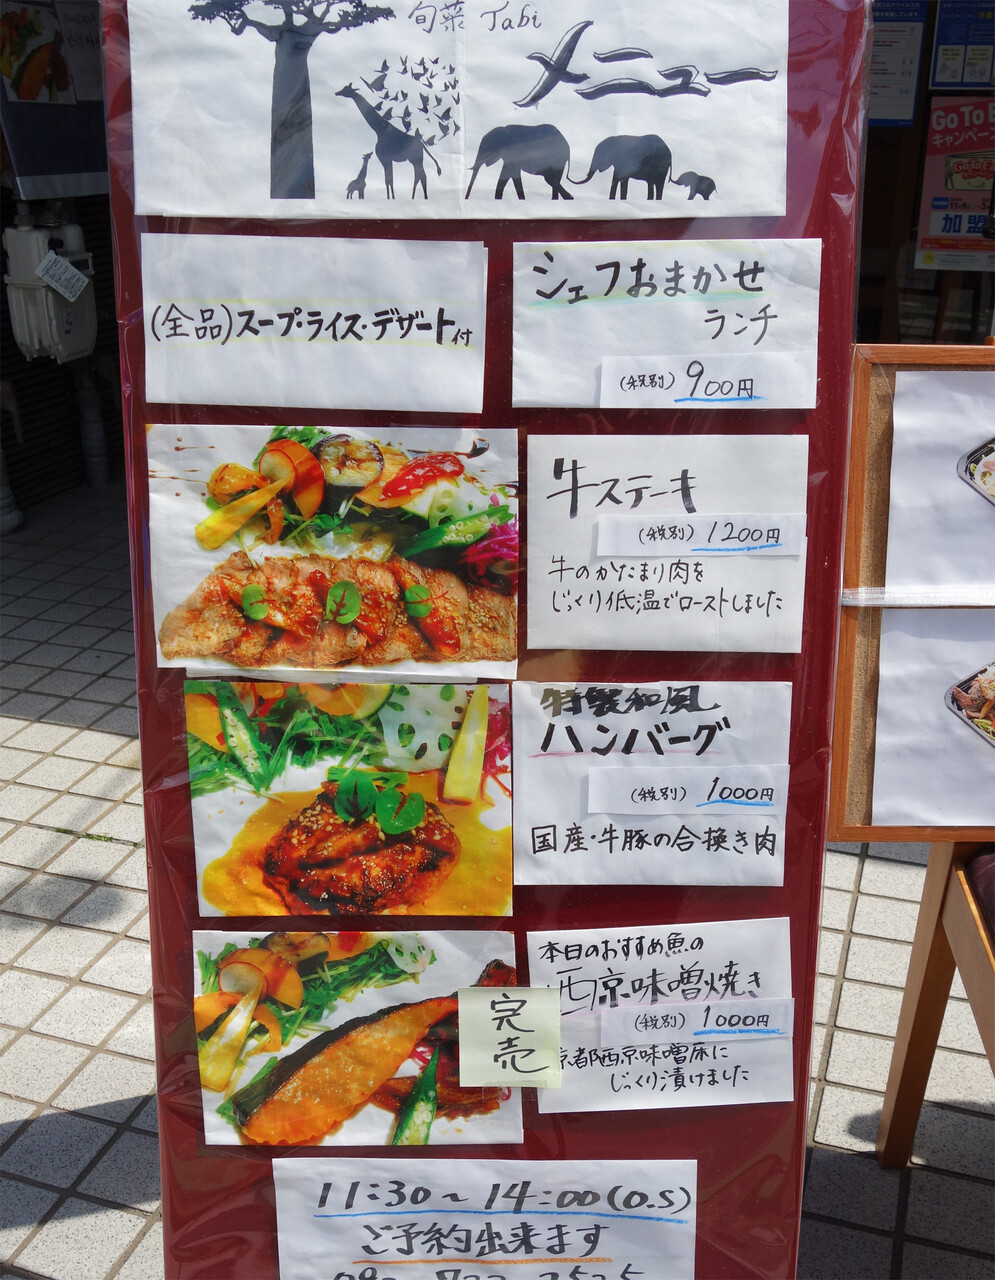 旬菜 Tabi
メニュー
(全品)スープ・ライス・デザート付
シェフおまかせ
ランチ
(税別) 900円
牛ステーキ
(税別) 1200円
牛のかたまり肉を
じっくり低温でローストしました
特製和風
ハンバーグ
(税別) 1000円
国産・牛豚の合挽き肉
本日のおすすめ魚の
西京味噌焼き
(税別) 1000円
完売
京都西京味噌床に
じっくり漬けました
11:30~14:00(O.S)
ご予約出来ます
Go To E
キャンペーン
加盟